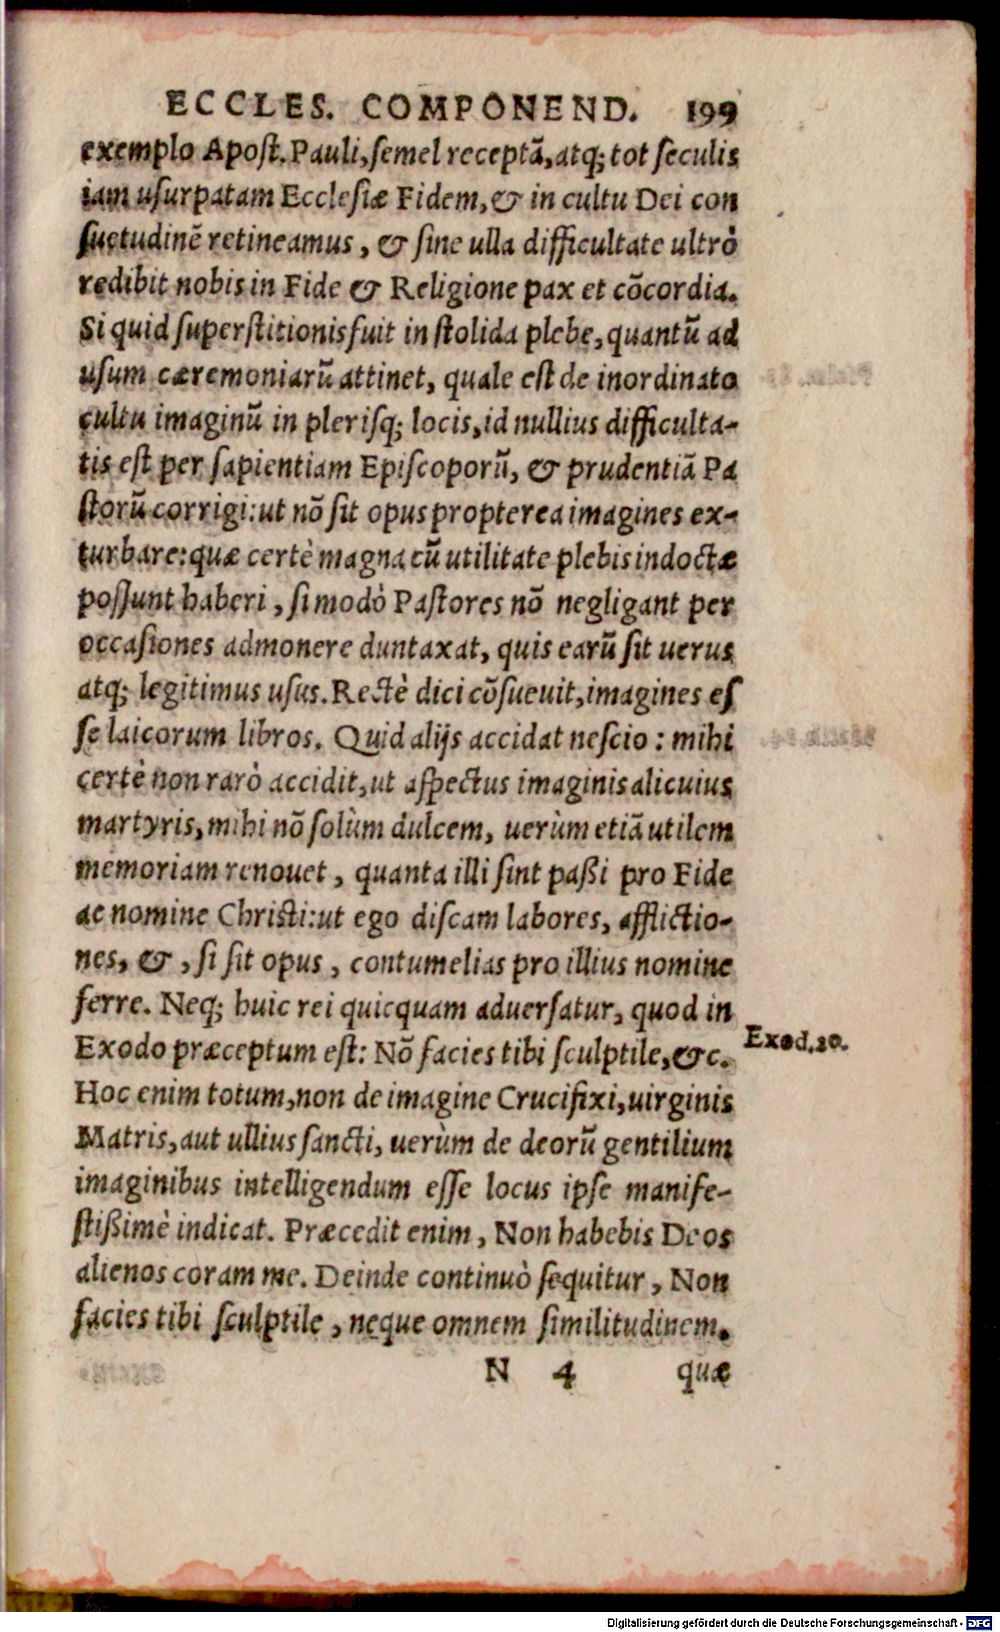 ECCLES. COMPONEND. 199
exemplo Apoſt. Pauli, ſemel receptã, atq; tot ſeculis
iam uſurpatam Eccleſiæ Fidem, & in cultu Dei con
ſuetudinẽ retineamus, & ſine ulla difficultate ultrò
redibit nobis in Fide & Religione pax et cõcordia.
Si quid ſuperſtitionis fuit in ſtolida plebe, quantũ ad
uſum cæremoniarũ attinet, quale eſt de inordinato
cultu imaginũ in pleriſq; locis, id nullius difficulta-
tis eſt per ſapientiam Epiſcoporũ, & prudentiã Pa
ſtorũ corrigi: ut nõ ſit opus propterea imagines ex-
turbare: quæ certè magna cũ utilitate plebis indoctæ
poſſunt haberi, ſi modò Paſtores nõ negligant per
occaſiones admonere duntaxat, quis earũ ſit uerus
atq; legitimus uſus. Rectè dici cõſueuit, imagines eſ
ſe laicorum libros. Quid alijs accidat neſcio: mihi
certè non rarò accidit, ut aſpectus imaginis alicuius
martyris, mihi nõ ſolùm dulcem, uerùm etiã utilem
memoriam renouet, quanta illi ſint paßi pro Fide
ac nomine Chriſti: ut ego diſcam labores, afflictio-
nes, &, ſi ſit opus, contumelias pro illius nomine
ferre. Neq; huic rei quicquam aduerſatur, quod in
Exodo præceptum eſt: Nõ facies tibi ſculptile, &c.
Exod. 20.
Hoc enim totum, non de imagine Crucifixi, uirginis
Matris, aut ullius ſancti, uerùm de deorũ gentilium
imaginibus intelligendum eſſe locus ipſe manife-
ſtißimè indicat. Præcedit enim, Non habebis Deos
alienos coram me. Deinde continuò ſequitur, Non
facies tibi ſculptile, neque omnem ſimilitudinem.
N 4 quæ
Digitalisierung gefördert durch die Deutsche Forschungsgemeinschaft - DFG